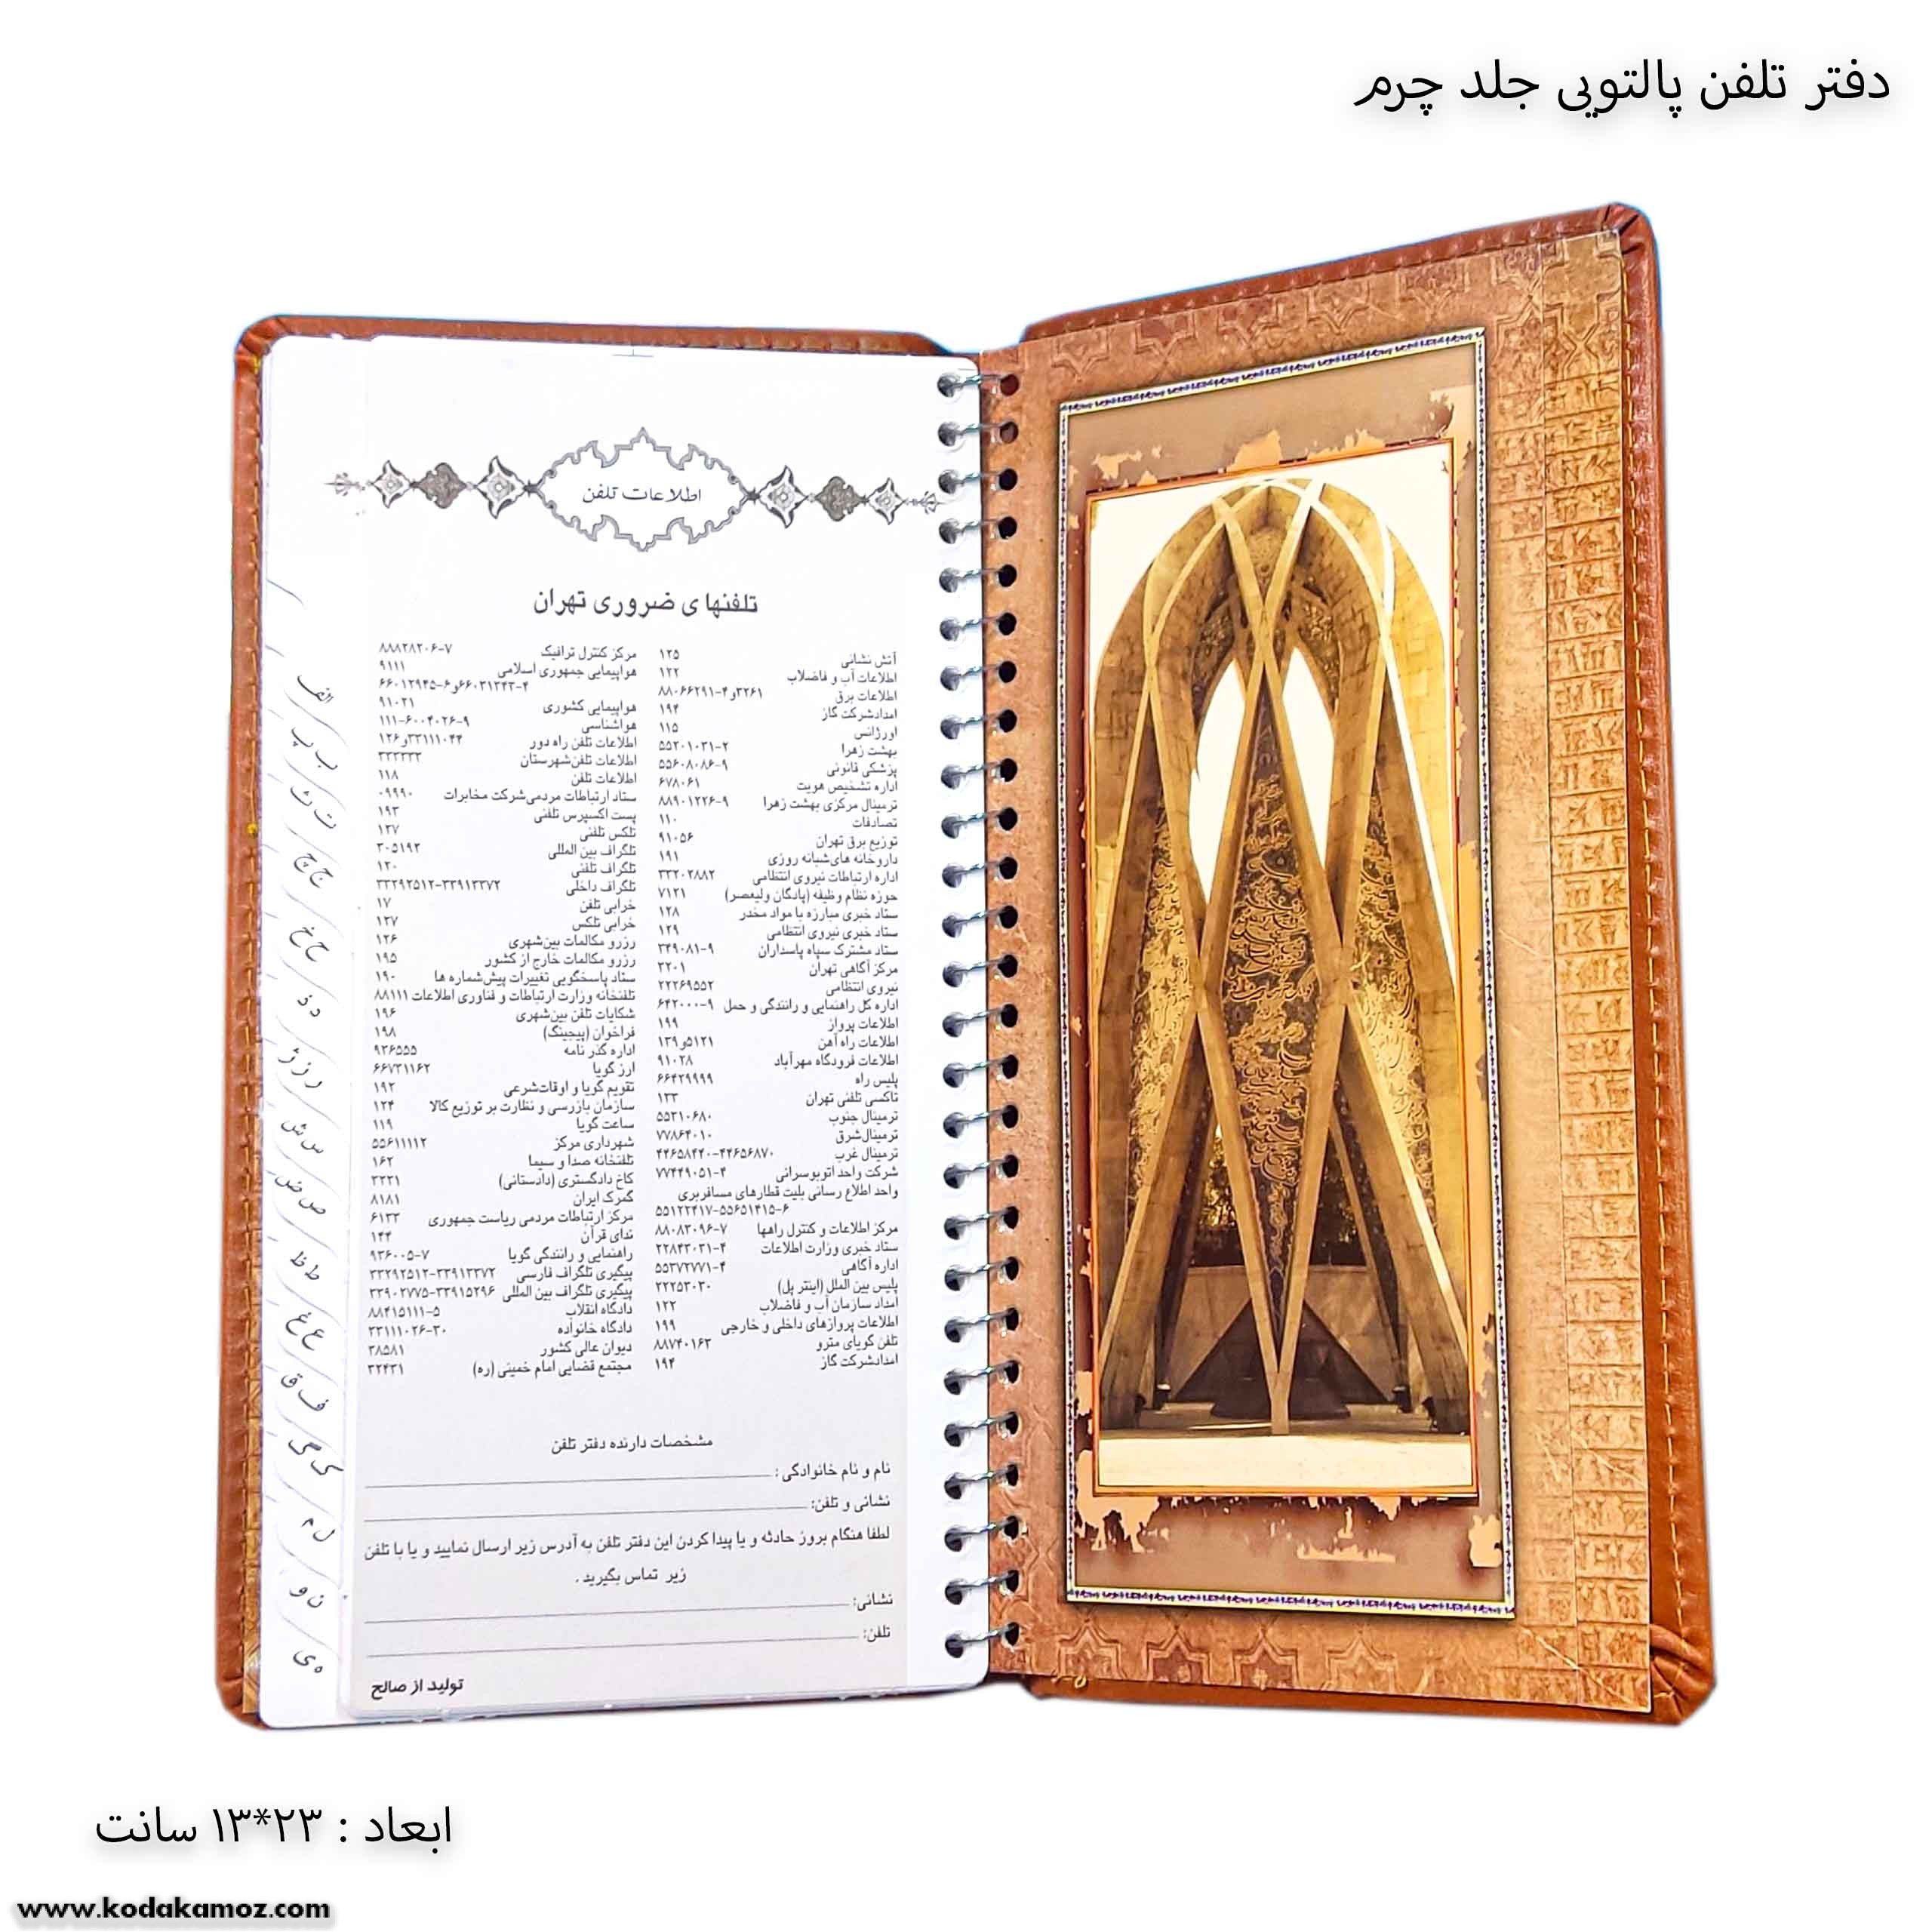 دفتر تلفن پالتویی جلد چرم
اطلاعات تلفن
تلفنهای ضروری تهران
آتش نشانی ۱۲۵
اطلاعات آب و فاضلاب ۱۲۲
اطلاعات برق ۳۲۶۱و۴-۸۸۰۶۶۲۹۱
امدادشرکت گاز ۱۹۴
اورژانس ۱۱۵
بهشت زهرا ۲-۵۵۲۰۱۰۳۱
پزشکی قانونی ۹-۵۵۶۰۸۰۸۶
اداره تشخیص هویت ۶۷۸۰۶۱
ترمینال مرکزی بهشت زهرا ۹-۸۸۹۰۱۲۲۶
تصادفات ۱۱۰
توزیع برق تهران ۹۱۰۵۶
داروخانه های شبانه روزی ۱۹۱
اداره ارتباطات نیروی انتظامی ۳۳۲۰۲۸۸۲
حوزه نظام وظیفه (پادگان ولیعصر) ۷۱۲۱
ستاد خبری مبارزه با مواد مخدر ۱۲۸
ستاد خبری نیروی انتظامی ۱۲۹
ستاد مشترک سپاه پاسداران ۹-۳۴۹۰۸۱
مرکز آگاهی تهران ۲۲۰۱
نیروی انتظامی ۲۲۲۶۹۵۵۲
اداره کل راهنمایی و رانندگی و حمل ۹-۶۴۲۰۰۰
اطلاعات پرواز ۱۹۹
اطلاعات راه آهن ۵۱۲۱و۱۳۹
اطلاعات فرودگاه مهرآباد ۹۱۰۲۸
پلیس راه ۶۶۴۲۹۹۹۹
تاکسی تلفنی تهران ۱۳۳
ترمینال جنوب ۵۵۳۱۰۶۸۰
ترمینال شرق ۷۷۸۶۴۰۱۰
ترمینال غرب ۴۴۶۵۸۴۴۰-۴۴۶۵۶۸۷۰
شرکت واحد اتوبوسرانی ۴-۷۷۴۴۹۰۵۱
واحد اطلاع رسانی بلیت قطارهای مسافربری
۵۵۱۲۲۴۱۷-۵۵۶۵۱۴۱۵-۶
مرکز اطلاعات و کنترل راهها ۷-۸۸۰۸۳۰۹۶
ستاد خبری وزارت اطلاعات ۴-۲۲۸۴۳۰۳۱
اداره آگاهی ۴-۵۵۳۷۲۷۷۱
پلیس بین الملل (اینتر پل) ۲۲۲۵۳۰۳۰
امداد سازمان آب و فاضلاب ۱۲۲
اطلاعات پروازهای داخلی و خارجی ۱۹۹
تلفن گویای مترو ۸۸۷۴۰۱۶۳
امدادشرکت گاز ۱۹۴
مرکز کنترل ترافیک ۷-۸۸۸۲۸۲۰۶
هواپیمایی جمهوری اسلامی ۹۱۱۱
۴-۶۶۰۳۱۳۴۳و۶-۶۶۰۱۲۹۴۵
هواپیمایی کشوری ۹۱۰۲۱
هواشناسی ۹-۱۱۱-۶۰۰۴۰۲۶
اطلاعات تلفن راه دور ۳۳۱۱۱۰۴۴و۱۲۶
اطلاعات تلفن شهرستان ۳۳۳۳۳۳
اطلاعات تلفن ۱۱۸
ستاد ارتباطات مردمی شرکت مخابرات ۰۹۹۹۰
پست اکسپرس تلفنی ۱۹۳
تلکس تلفنی ۱۳۷
تلگراف بین المللی ۳۰۵۱۹۲
تلگراف تلفنی ۱۲۰
تلگراف داخلی ۳۳۲۹۲۵۱۲-۳۳۹۱۳۳۷۲
خرابی تلفن ۱۷
خرابی تلکس ۱۳۷
رزرو مکالمات بین شهری ۱۲۶
رزرو مکالمات خارج از کشور ۱۹۵
ستاد پاسخگویی تغییرات پیش شماره ها ۱۹۰
تلفنخانه وزارت ارتباطات و فناوری اطلاعات ۸۸۱۱۱
شکایات تلفن بین شهری ۱۹۶
فراخوان (پیجینگ) ۱۹۸
اداره گذر نامه ۹۳۶۵۵۵
ارز گویا ۶۶۷۳۱۱۶۲
تقویم گویا و اوقات شرعی ۱۹۲
سازمان بازرسی و نظارت بر توزیع کالا ۱۲۴
ساعت گویا ۱۱۹
شهرداری مرکز ۵۵۶۱۱۱۱۲
تلفنخانه صدا و سیما ۱۶۲
کاخ دادگستری (دادستانی) ۳۲۲۱
گمرک ایران ۸۱۸۱
مرکز ارتباطات مردمی ریاست جمهوری ۶۱۳۳
ندای قرآن ۱۴۴
راهنمایی و رانندگی گویا ۷-۹۳۶۰۰۵
پیگیری تلگراف فارسی ۳۳۲۹۲۵۱۲-۳۳۹۱۳۳۷۲
پیگیری تلگراف بین المللی ۳۳۹۰۲۷۷۵-۳۳۹۱۵۲۹۶
دادگاه انقلاب ۵-۸۸۴۱۵۱۱۱
دادگاه خانواده ۳۰-۳۳۱۱۱۰۲۶
دیوان عالی کشور ۳۸۵۸۱
مجتمع قضایی امام خمینی (ره) ۳۲۴۳۱
مشخصات دارنده دفتر تلفن
نام و نام خانوادگی :
نشانی و تلفن:
لطفا هنگام بروز حادثه و یا پیدا کردن این دفتر تلفن به آدرس زیر ارسال نمایید و یا با تلفن
زیر تماس بگیرید .
نشانی:
تلفن:
تولید از صالح
الف
ب پ
ت ث
ج چ
ح خ
د ذ
ر ز ژ
س ش
ص ض
ط ظ
ع غ
ف ق
ک گ
ل م
ن و
ه ی
ابعاد : ۲۳*۱۳ سانت
www.kodakamoz.com